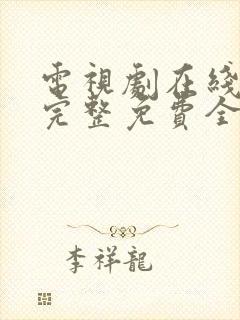 電視劇在綫
完整免費全
李祥龍